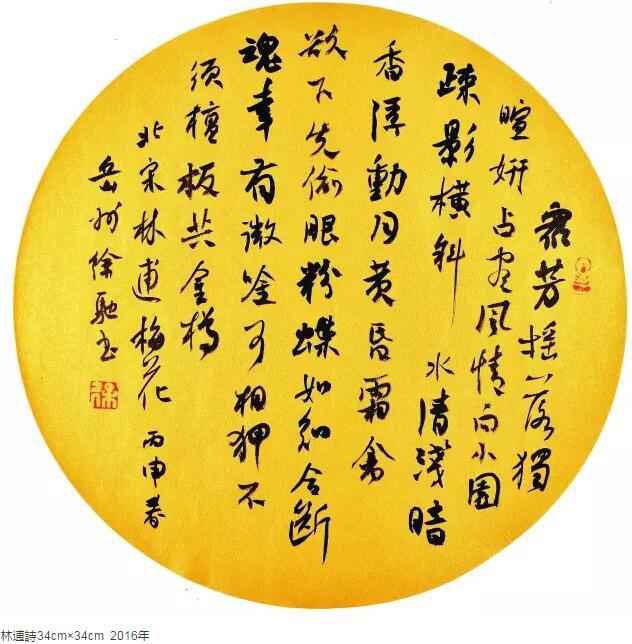 衆芳摇落獨
暄妍占尽風情向小園
疎影横斜水清淺暗
香浮動月黄昏霜禽
欲下先偷眼粉蝶如知合斷
魂幸有微吟可相狎不
須檀板共金樽
北宋林逋梅花丙申春
岳州徐馳书
林逋詩34cm×34cm 2016年